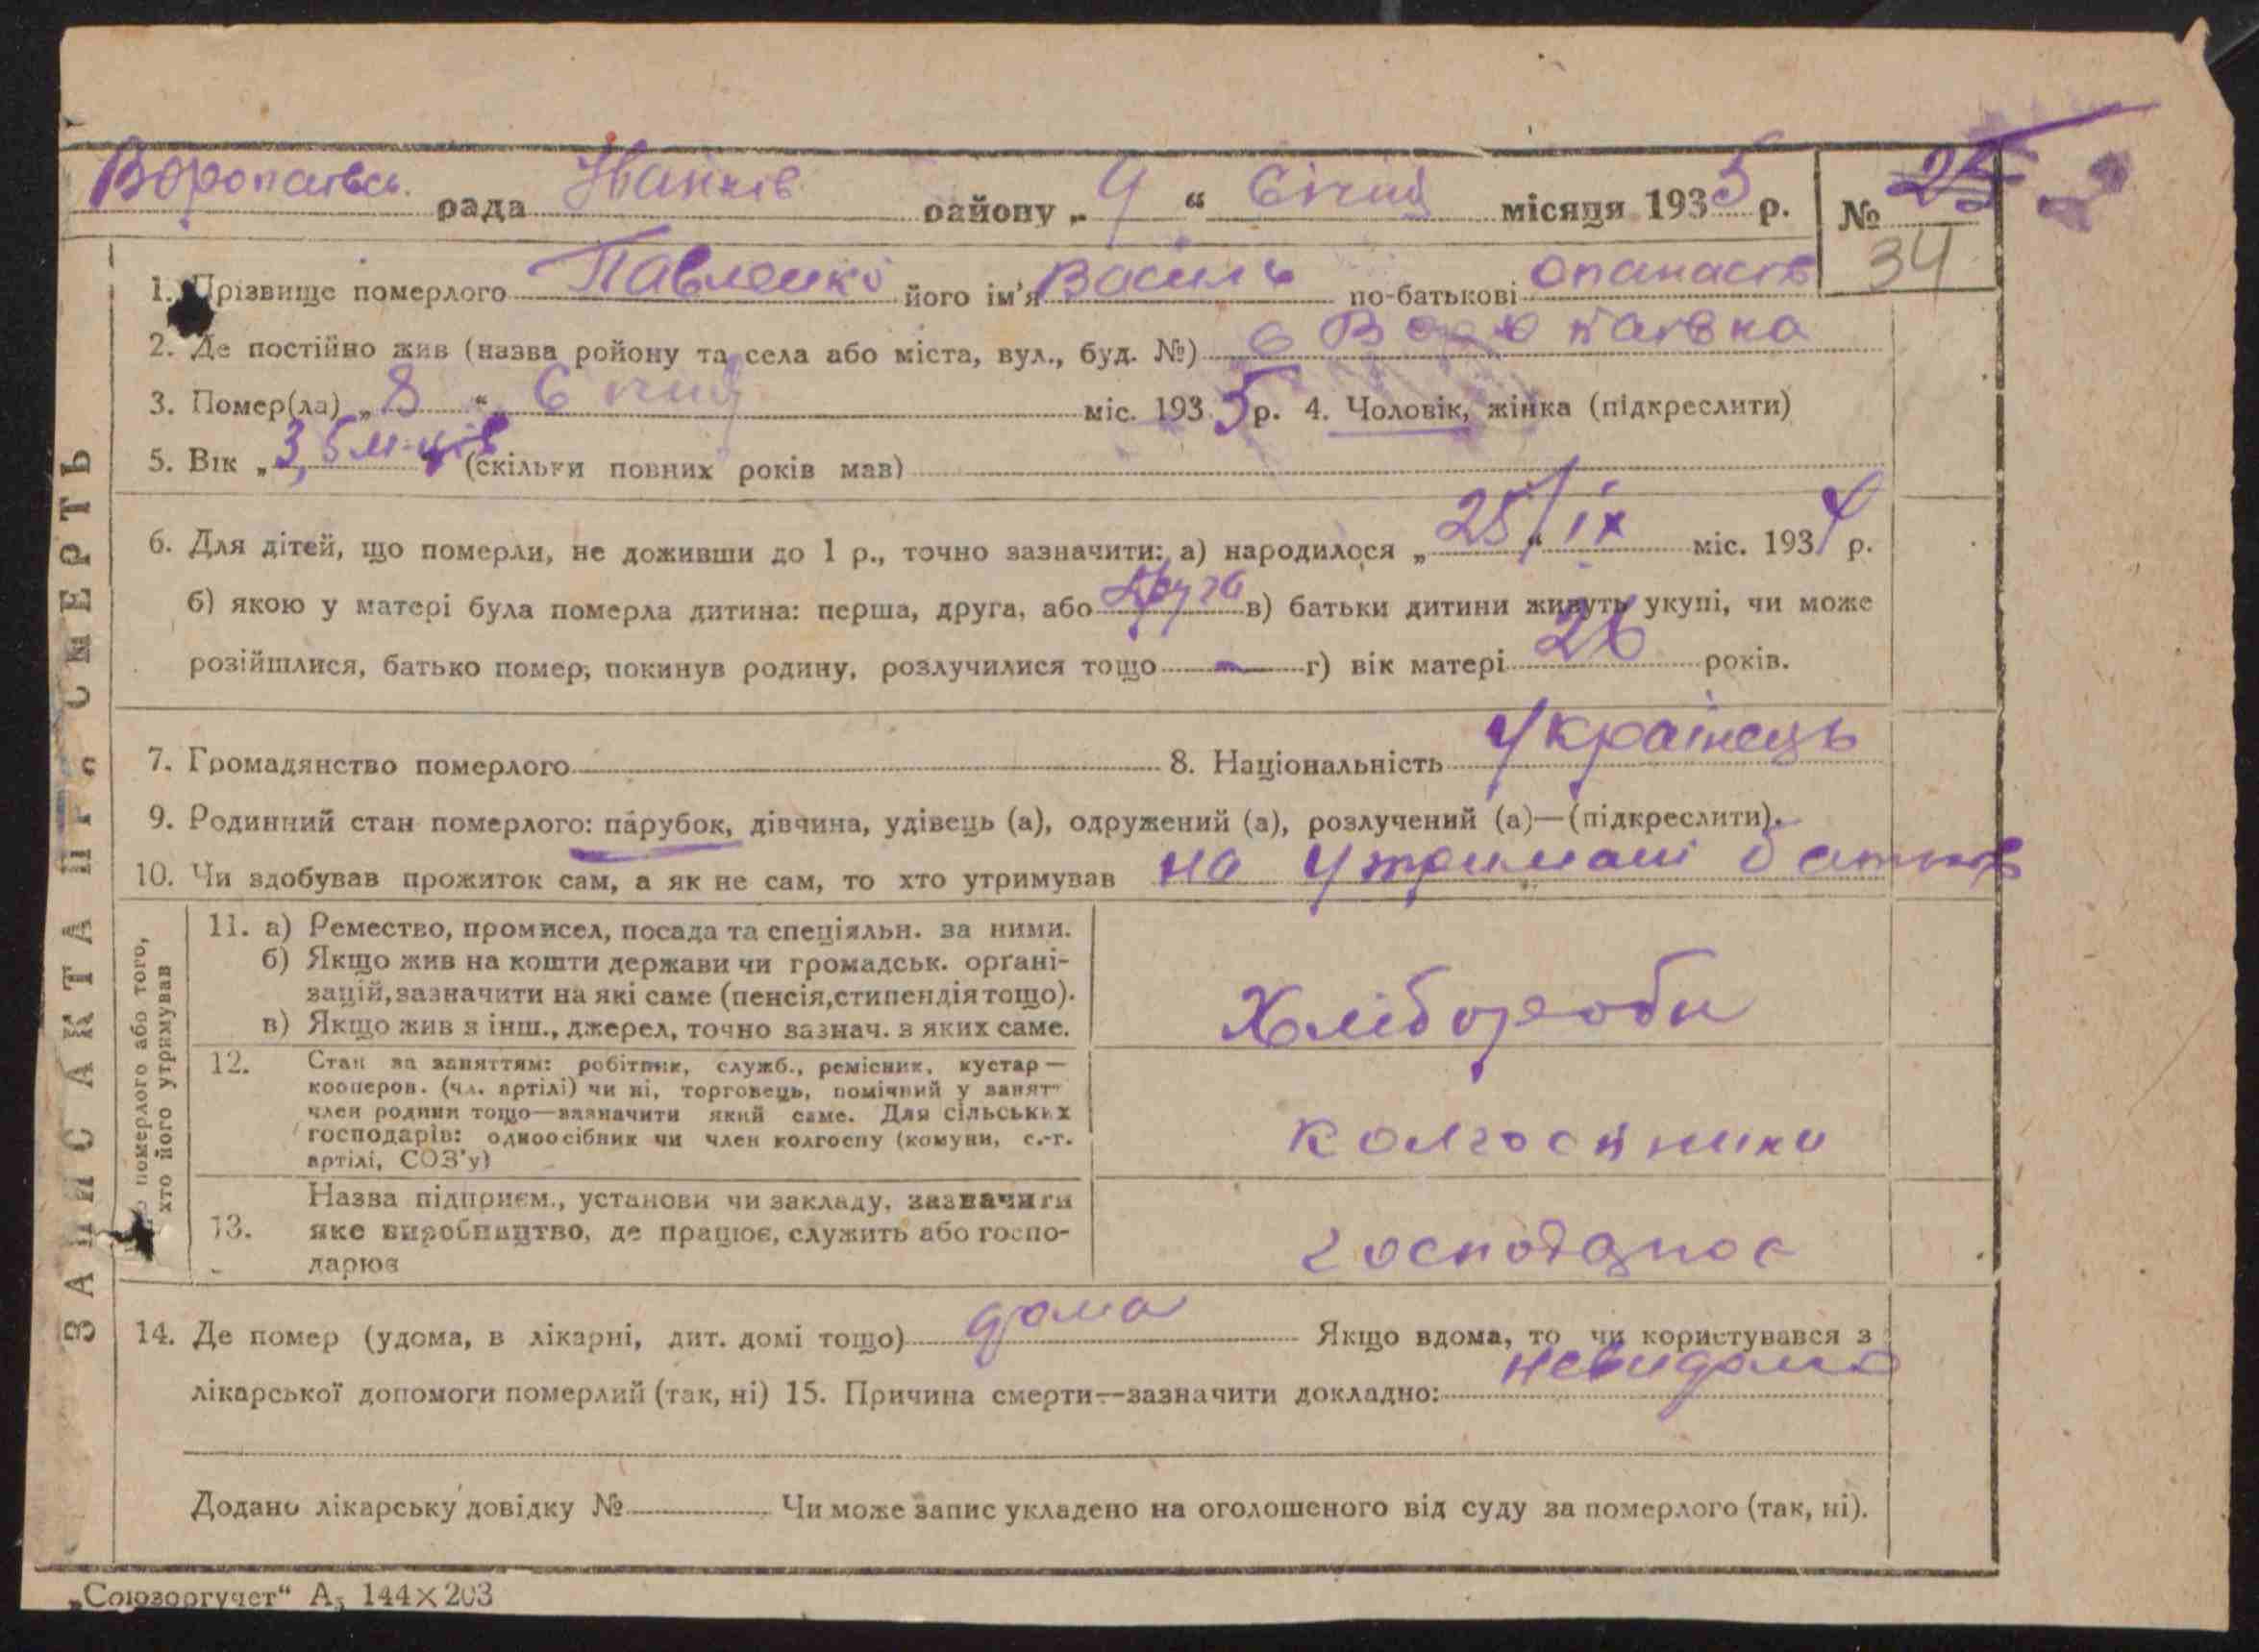 Воропаївсь. рада Іванків району „ 9 “ Січня місяця 1935 р. № 25
34
1. Прізвище померлого Павленко його ім'я Василь по-батькові Опанасів
2. Де постійно жив (назва ройону та села або міста, вул., буд. №) с Воропаївка
3. Помер(ла) „ 8 “ Січня міс. 1935 р. 4. Чоловік, жінка (підкреслити)
5. Вік „ 3,5 м-ців “ (скільки повних років мав)
6. Для дітей, що померли, не доживши до 1 р., точно зазначити: а) народилося „ 25 “ IX міс. 1934 р.
б) якою у матері була померла дитина: перша, друга, або друга в) батьки дитини живуть укупі, чи може
розійшлися, батько помер, покинув родину, розлучилися тощо — г) вік матері 26 років.
7. Громадянство померлого 8. Національність Українець
9. Родинний стан померлого: парубок, дівчина, удівець (а), одружений (а), розлучений (а)—(підкреслити).
10. Чи здобував прожиток сам, а як не сам, то хто утримував на утримані батьків
ЗАПИС АКТА ПРО СМЕРТЬ
померлого або того,
хто його утримував
11. а) Ремество, промисел, посада та спеціяльн. за ними.
б) Якщо жив на кошти держави чи громадськ. органі-
зацій, зазначити на які саме (пенсія, стипендія тощо).
в) Якщо жив з інш., джерел, точно зазнач. з яких саме.
Хлібороби
12. Стан за заняттям: робітник, служб., ремісник, кустар—
кооперов. (чл. артілі) чи ні, торговець, помічний у занят
член родини тощо—зазначити який саме. Для сільських
господарів: одноосібник чи член колгоспу (комуни, с.-г.
артілі, СОЗ'у)
колгоспники
13. Назва підприєм., установи чи закладу, зазначити
яке виробництво, де працює, служить або госпо-
дарює
14. Де помер (удома, в лікарні, дит. домі тощо) дома Якщо вдома, то чи користувався з
лікарської допомоги померлий (так, ні) 15. Причина смерти—зазначити докладно: невидомо
Додано лікарську довідку № Чи може запис укладено на оголошеного від суду за померлого (так, ні).
„Союзоргучет“ А₅ 144×203